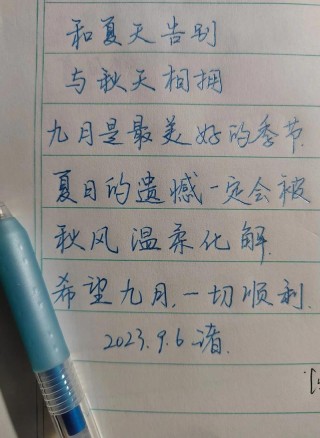 和夏天告别
与秋天相拥
九月是最美好的季节.
夏日的遗憾一定会被
秋风温柔化解.
希望九月.一切顺利.
2023.9.6 诸.